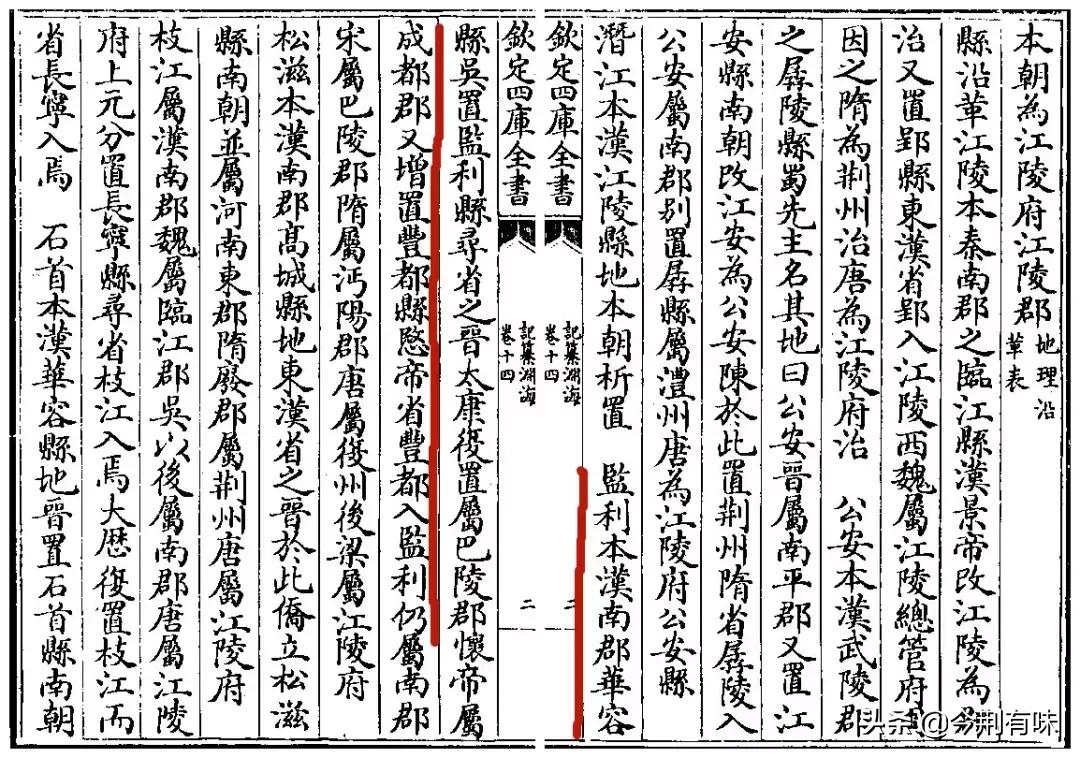 本朝為江陵府江陵郡地理沿革表
縣沿革江陵本秦南郡之臨江縣漢景帝改江陵為郡
治又置郢縣東漢省郢入江陵西魏屬江陵總管府
因之隋為荆州治唐為江陵府治 公安本漢武陵郡
之孱陵縣蜀先主名其地曰公安晉屬南平郡又置江
安縣南朝改江安為公安陳於此置荆州隋省孱陵入
公安屬南郡别置孱縣屬澧州唐為江陵府公安縣
潛江本漢江陵縣地本朝析置 監利本漢南郡華容
欽定四庫全書 記纂淵海卷十四 二
欽定四庫全書 記纂淵海卷十四 二
縣吳置監利縣尋省之晉太康復置屬巴陵郡懷帝屬
成都郡又增置豐都縣愍帝省豐都入監利仍屬南郡
宋屬巴陵郡隋屬沔陽郡唐屬復州後梁屬江陵府
松滋本漢南郡高城縣地東漢省之晉於此僑立松滋
縣南朝並屬河南東郡隋廢郡屬荆州唐屬江陵府
枝江屬漢南郡魏屬臨江郡吳以後屬南郡唐屬江陵
府上元分置長寧縣尋省枝江入焉大厯復置枝江而
省長寧入焉 石首本漢華容縣地晉置石首縣南朝
头条@今荆有味